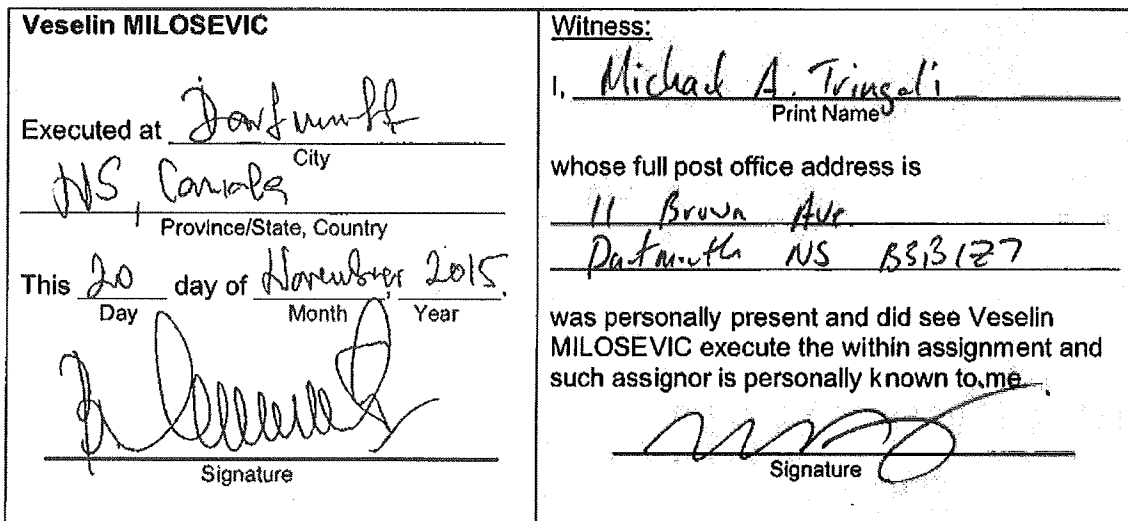 Veselin MILOSEVIC
Executed at Dartmouth
City
NS, Canada
Province/State, Country
This 20 day of November, 2015.
Day Month Year
Signature
Witness:
I, Michael A. Tringali
Print Name
whose full post office address is
11 Brown Ave
Dartmouth NS
was personally present and did see Veselin
MILOSEVIC execute the within assignment and
such assignor is personally known to me.
Signature